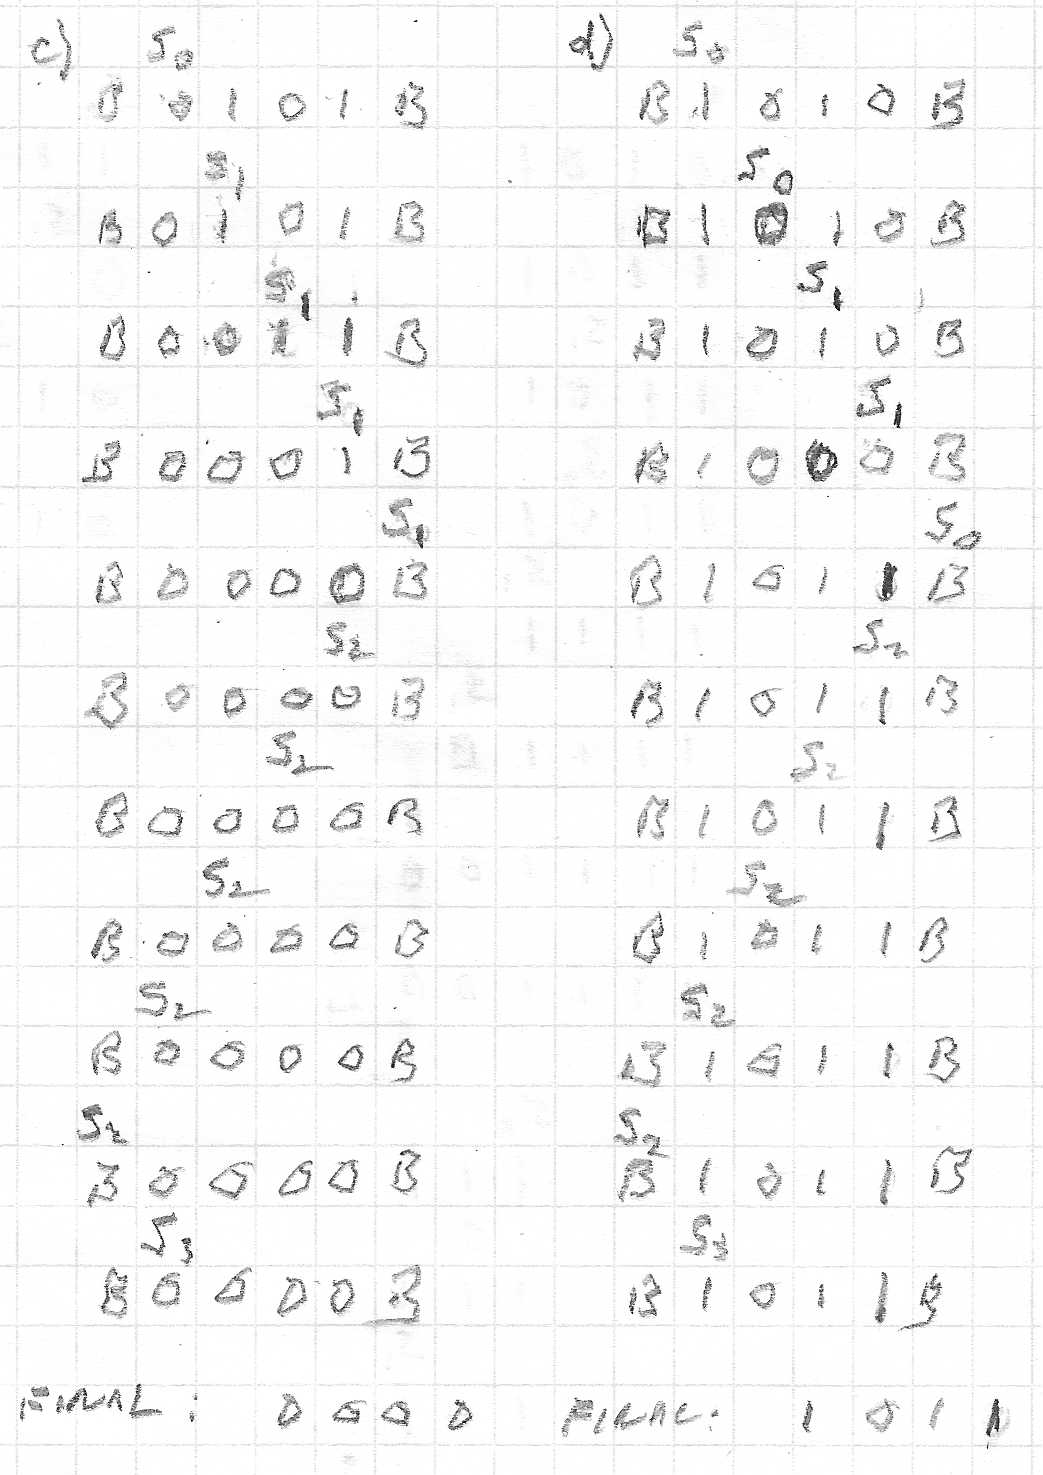 c) S0
B 0 1 0 1 B
S1
B 0 1 0 1 B
S1
B 0 0 1 1 B
S1
B 0 0 0 1 B
S1
B 0 0 0 0 B
S2
B 0 0 0 0 B
S2
B 0 0 0 0 B
S2
B 0 0 0 0 B
S2
B 0 0 0 0 B
S2
B 0 0 0 0 B
S3
B 0 0 0 0 B
FINAL: 0 0 0 0
d) S0
B 1 0 1 0 B
S0
B 1 0 1 0 B
S1
B 1 0 1 0 B
S1
B 1 0 0 0 B
S0
B 1 0 1 1 B
S2
B 1 0 1 1 B
S2
B 1 0 1 1 B
S2
B 1 0 1 1 B
S2
B 1 0 1 1 B
S2
B 1 0 1 1 B
S3
B 1 0 1 1 B
FINAL: 1 0 1 1